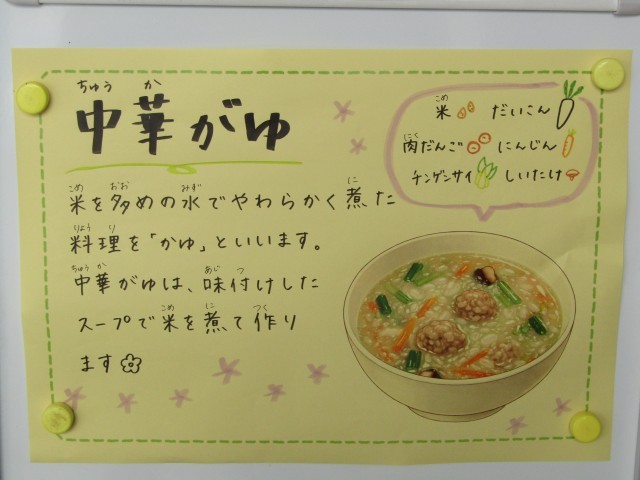 ちゅう か
中華がゆ
こめ おお みず に
米を多めの水でやわらかく煮た
りょう り
料理を「かゆ」といいます。
ちゅう か あじ つ
中華がゆは、味付けした
こめ に つく
スープで米を煮て作り
ます
こめ
米 だいこん
にく
肉だんご にんじん
チンゲンサイ しいたけ